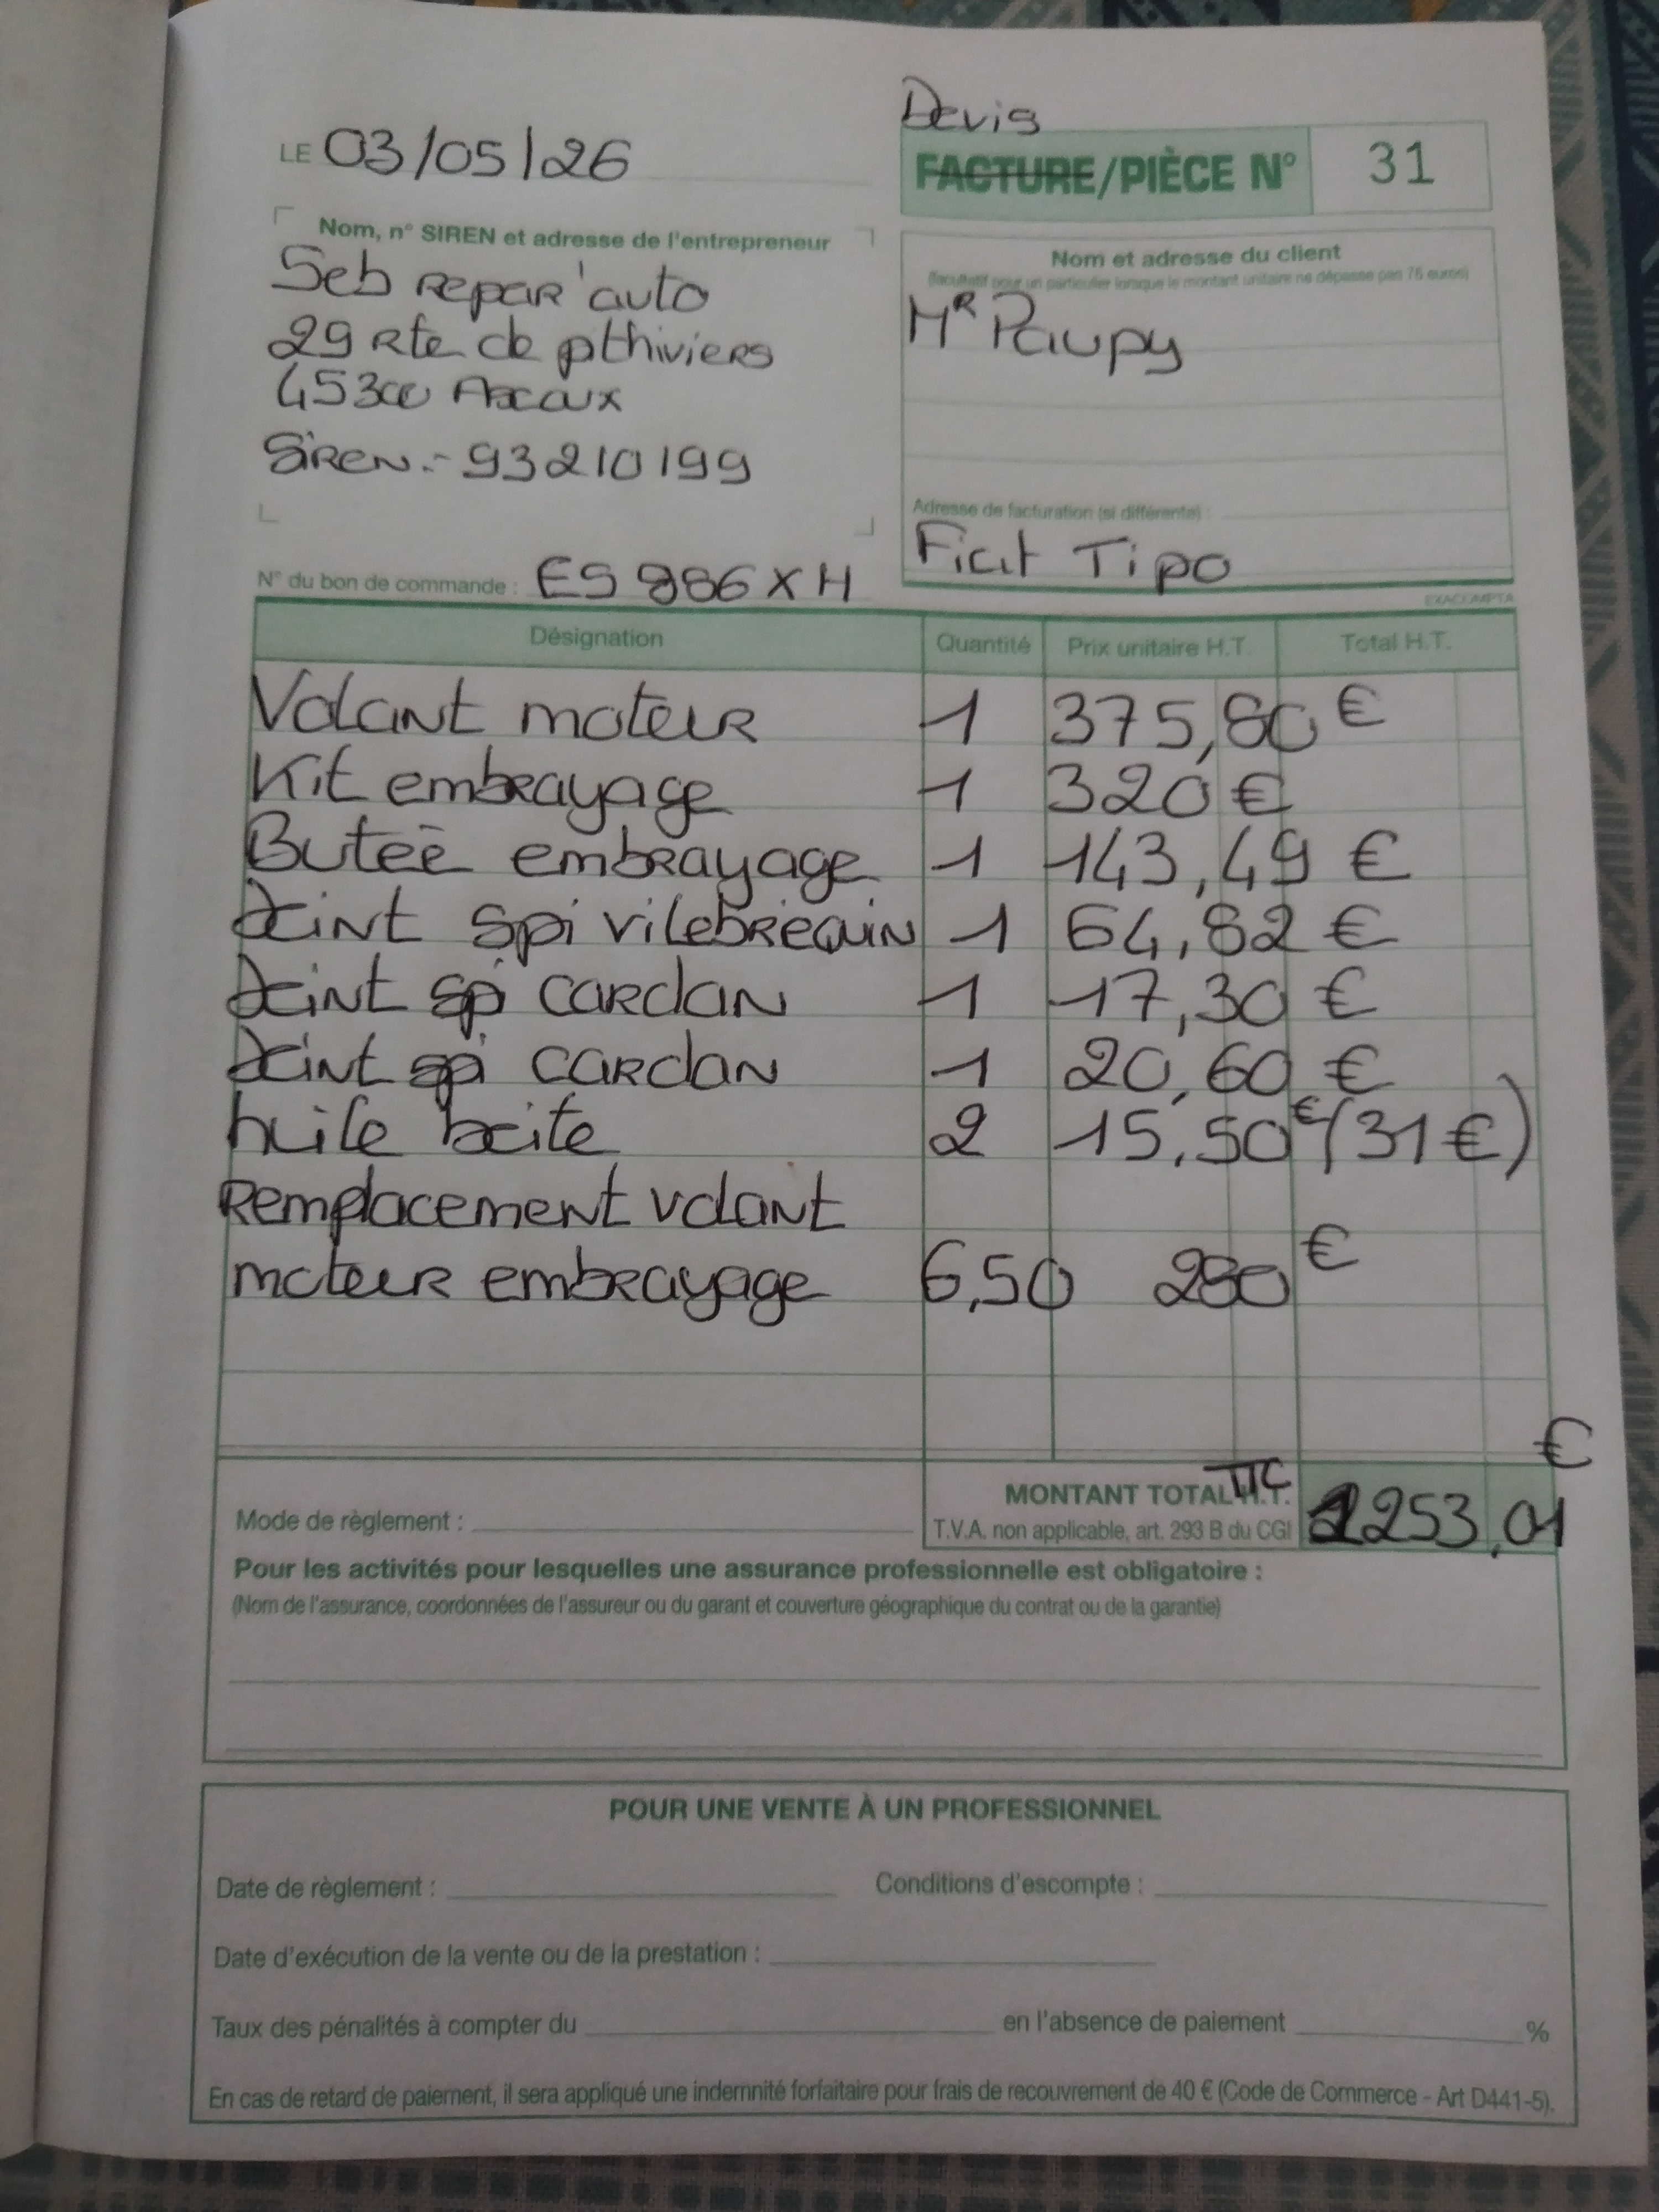 Devis
LE 03/05/26
FACTURE/PIÈCE N° 31
Nom, n° SIREN et adresse de l'entrepreneur
Seb repar'auto
29 Rte de pthiviers
45300 Ascoux
Siren :- 93210199
Nom et adresse du client
(facultatif pour un particulier lorsque le montant unitaire ne dépasse pas 76 euros)
Mr Paupy
Adresse de facturation (si différente) :
Fiat Tipo
N° du bon de commande : ES 986 XH
EXACOMPTA
Désignation Quantité Prix unitaire H.T. Total H.T.
Volant moteur 1 375,80 €
Kit embrayage 1 320 €
Buteé embrayage 1 143,49 €
Joint spi vilebrequin 1 64,82 €
Joint spi cardan 1 17,30 €
Joint spi cardan 1 20,60 €
huile boite 2 15,50 € (31 €)
Remplacement volant
moteur embrayage 6,50 280 €
€
Mode de règlement :
MONTANT TOTAL H.T. TTC 1253,01
T.V.A. non applicable, art. 293 B du CGI
Pour les activités pour lesquelles une assurance professionnelle est obligatoire :
(Nom de l'assurance, coordonnées de l'assureur ou du garant et couverture géographique du contrat ou de la garantie)
POUR UNE VENTE À UN PROFESSIONNEL
Date de règlement : Conditions d'escompte :
Date d'exécution de la vente ou de la prestation :
Taux des pénalités à compter du en l'absence de paiement %
En cas de retard de paiement, il sera appliqué une indemnité forfaitaire pour frais de recouvrement de 40 € (Code de Commerce - Art D441-5).